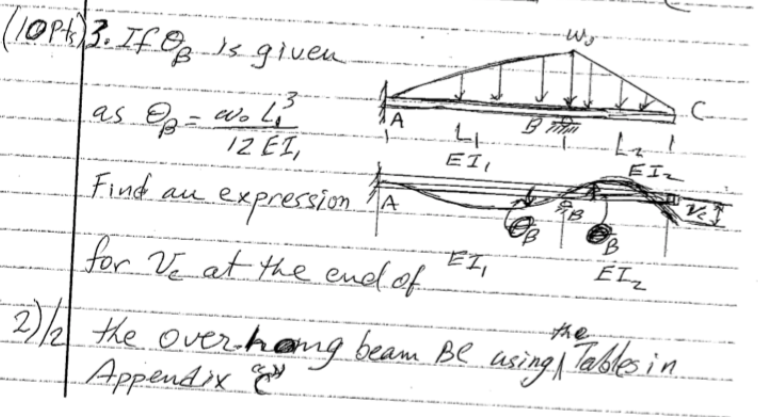 (10 Pts) 3. If θB is given
as θB = w₀ L₁³ / 12 EI₁
Find an expression
for Vc at the end of
2)/2 the overhang beam BC using the Tables in
Appendix "C"
w₀
A
B
C
L₁
L₂
EI₁
EI₂
A
B
θB
θB
Vc
EI₁
EI₂